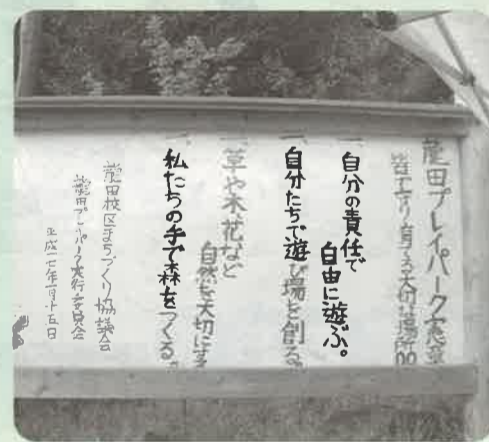 龍田プレイパーク憲章
皆で守り育てる大切な場所
一、自分の責任で
自由に遊ぶ。
一、自分たちで遊び場を創る。
一、草や木花など
自然を大切にす
一、私たちの手で森をつくる。
龍田校区まちづくり協議会
龍田プレイパーク実行委員会
平成一七年一月十五日